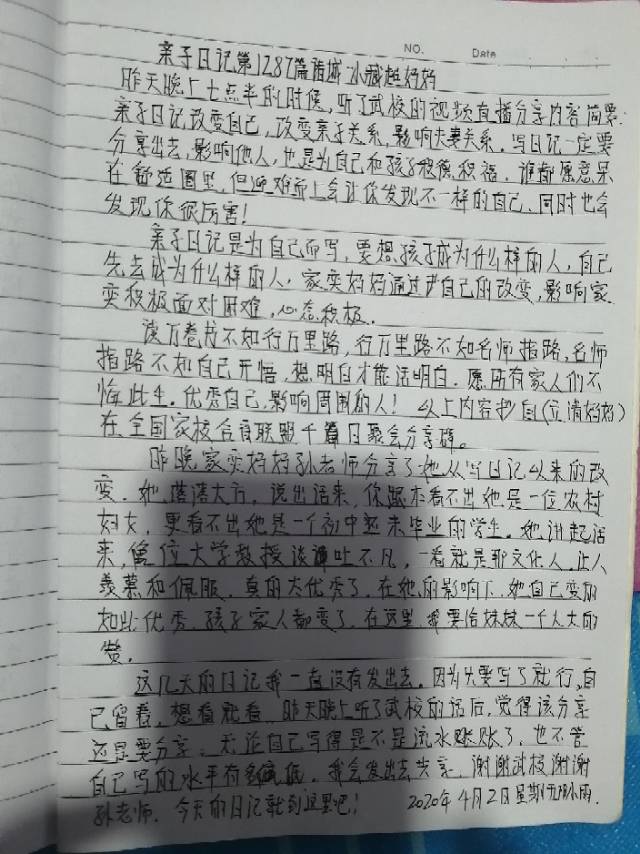 NO.
Date
亲子日记第1287篇诸城 小臧赵妈妈
昨天晚上七点半的时候,听了武校的视频直播分享内容简要:
亲子日记改变自己,改变亲子关系,影响夫妻关系.写日记一定要
分享出去,影响他人,也是为自己和孩子积德积福.谁都愿意呆
在舒适圈里,但迎难而上会让你发现不一样的自己.同时也会
发现你很厉害!
亲子日记是为自己而写,要想孩子成为什么样的人,自己
先去成为什么样的人.家奕妈妈通过自己的改变,影响家
奕积极面对困难,心态积极.
读万卷书不如行万里路,行万里路不如名师指路,名师
指路不如自己开悟,想明白才能活明白.愿所有家人们不
悔此生.优秀自己,影响周围的人!以上内容抄自(立清妈妈)
在全国家校合育联盟千日聚会分享稿。
昨晚家奕妈妈孙老师分享了她从写日记以来的改
变.她落落大方,说出话来,你跟本看不出她是一位农村
妇女,更看不出她是一个初中未毕业的学生.她讲起话
来,像位大学教授谈吐不凡,一看就是那文化人.让人
羡慕和佩服.真的太优秀了.在她的影响下,她自己变的
如此优秀.孩子家人都变了.在这里我要给妹妹一个大大的
赞.
这几天的日记我一直没有发出去.因为只要写了就行,自
己留着,想看就看.昨天晚上听了武校的话后,觉得该分享
还是要分享.无论自己写得是不是流水账了,也不管
自己写的水平有多低.我会发出去分享.谢谢武校谢谢
孙老师.今天的日记就到这里吧! 2020年4月2日星期四小雨.